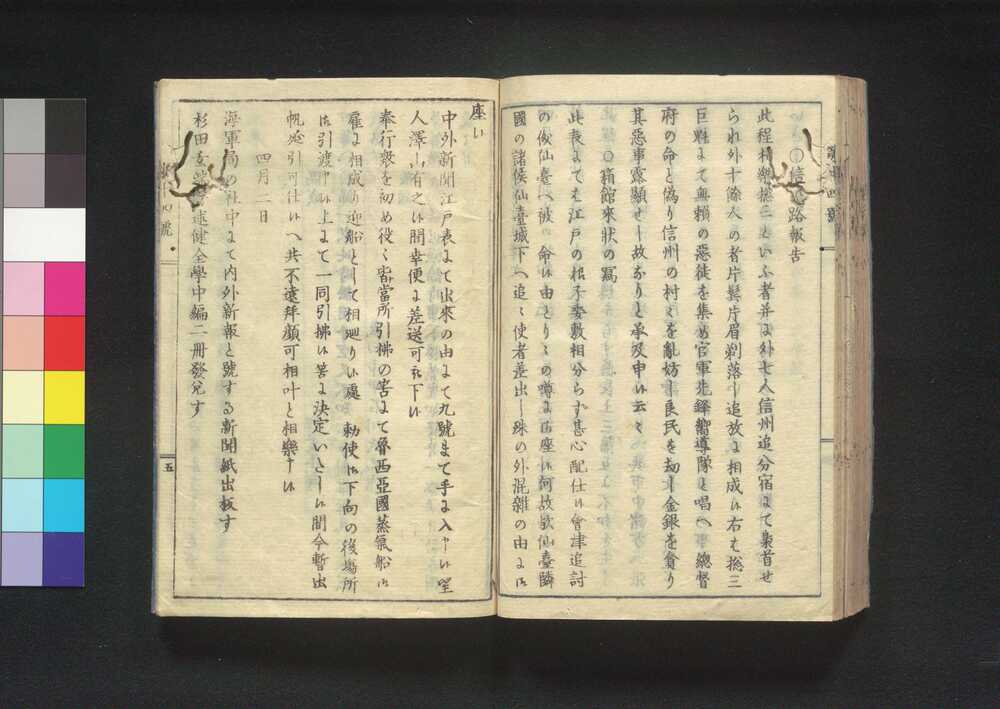 ○信州路報告
此程相樂惣三といふ者并に外七人信州追分宿にて梟首せ
られ外十餘人の者片鬢片眉剃落し追放に相成い右も惣三
巨魁にて無頼の惡徒を集め官軍先鋒嚮導隊と唱へ總督
府の命と偽り信州の村々を亂妨し良民を劫し金銀を貪り
其惡事露顯せし故なりと承及申い云々
○箱館來狀の寫
此表にても江戸の様子委敷相分らず甚心配仕い會津追討
の儀仙臺へ被 命い由とり〳〵の噂に御座い何故歟仙臺隣
國の諸侯仙臺城下へ追々使者差出し殊の外混雜の由に御
座い
中外新聞江戸表にて出來の由にて九號まで手に入申い望
人澤山有之い間幸便に差送可被下い
奉行衆を初め役々皆當所引拂の筈にて魯西亞國蒸氣船御
雇に相成り迎船として相廻りい處 勅使御下向の後場所
御引渡申い上にて一同引拂い筈に決定いたしい間今暫出
帆延引可仕いへ共不遠拜顔可相叶と相樂申い
四月二日
海軍局の社中にて内外新報と號する新聞紙出板す
杉田玄端譯述健全學中編二冊發兌す
五